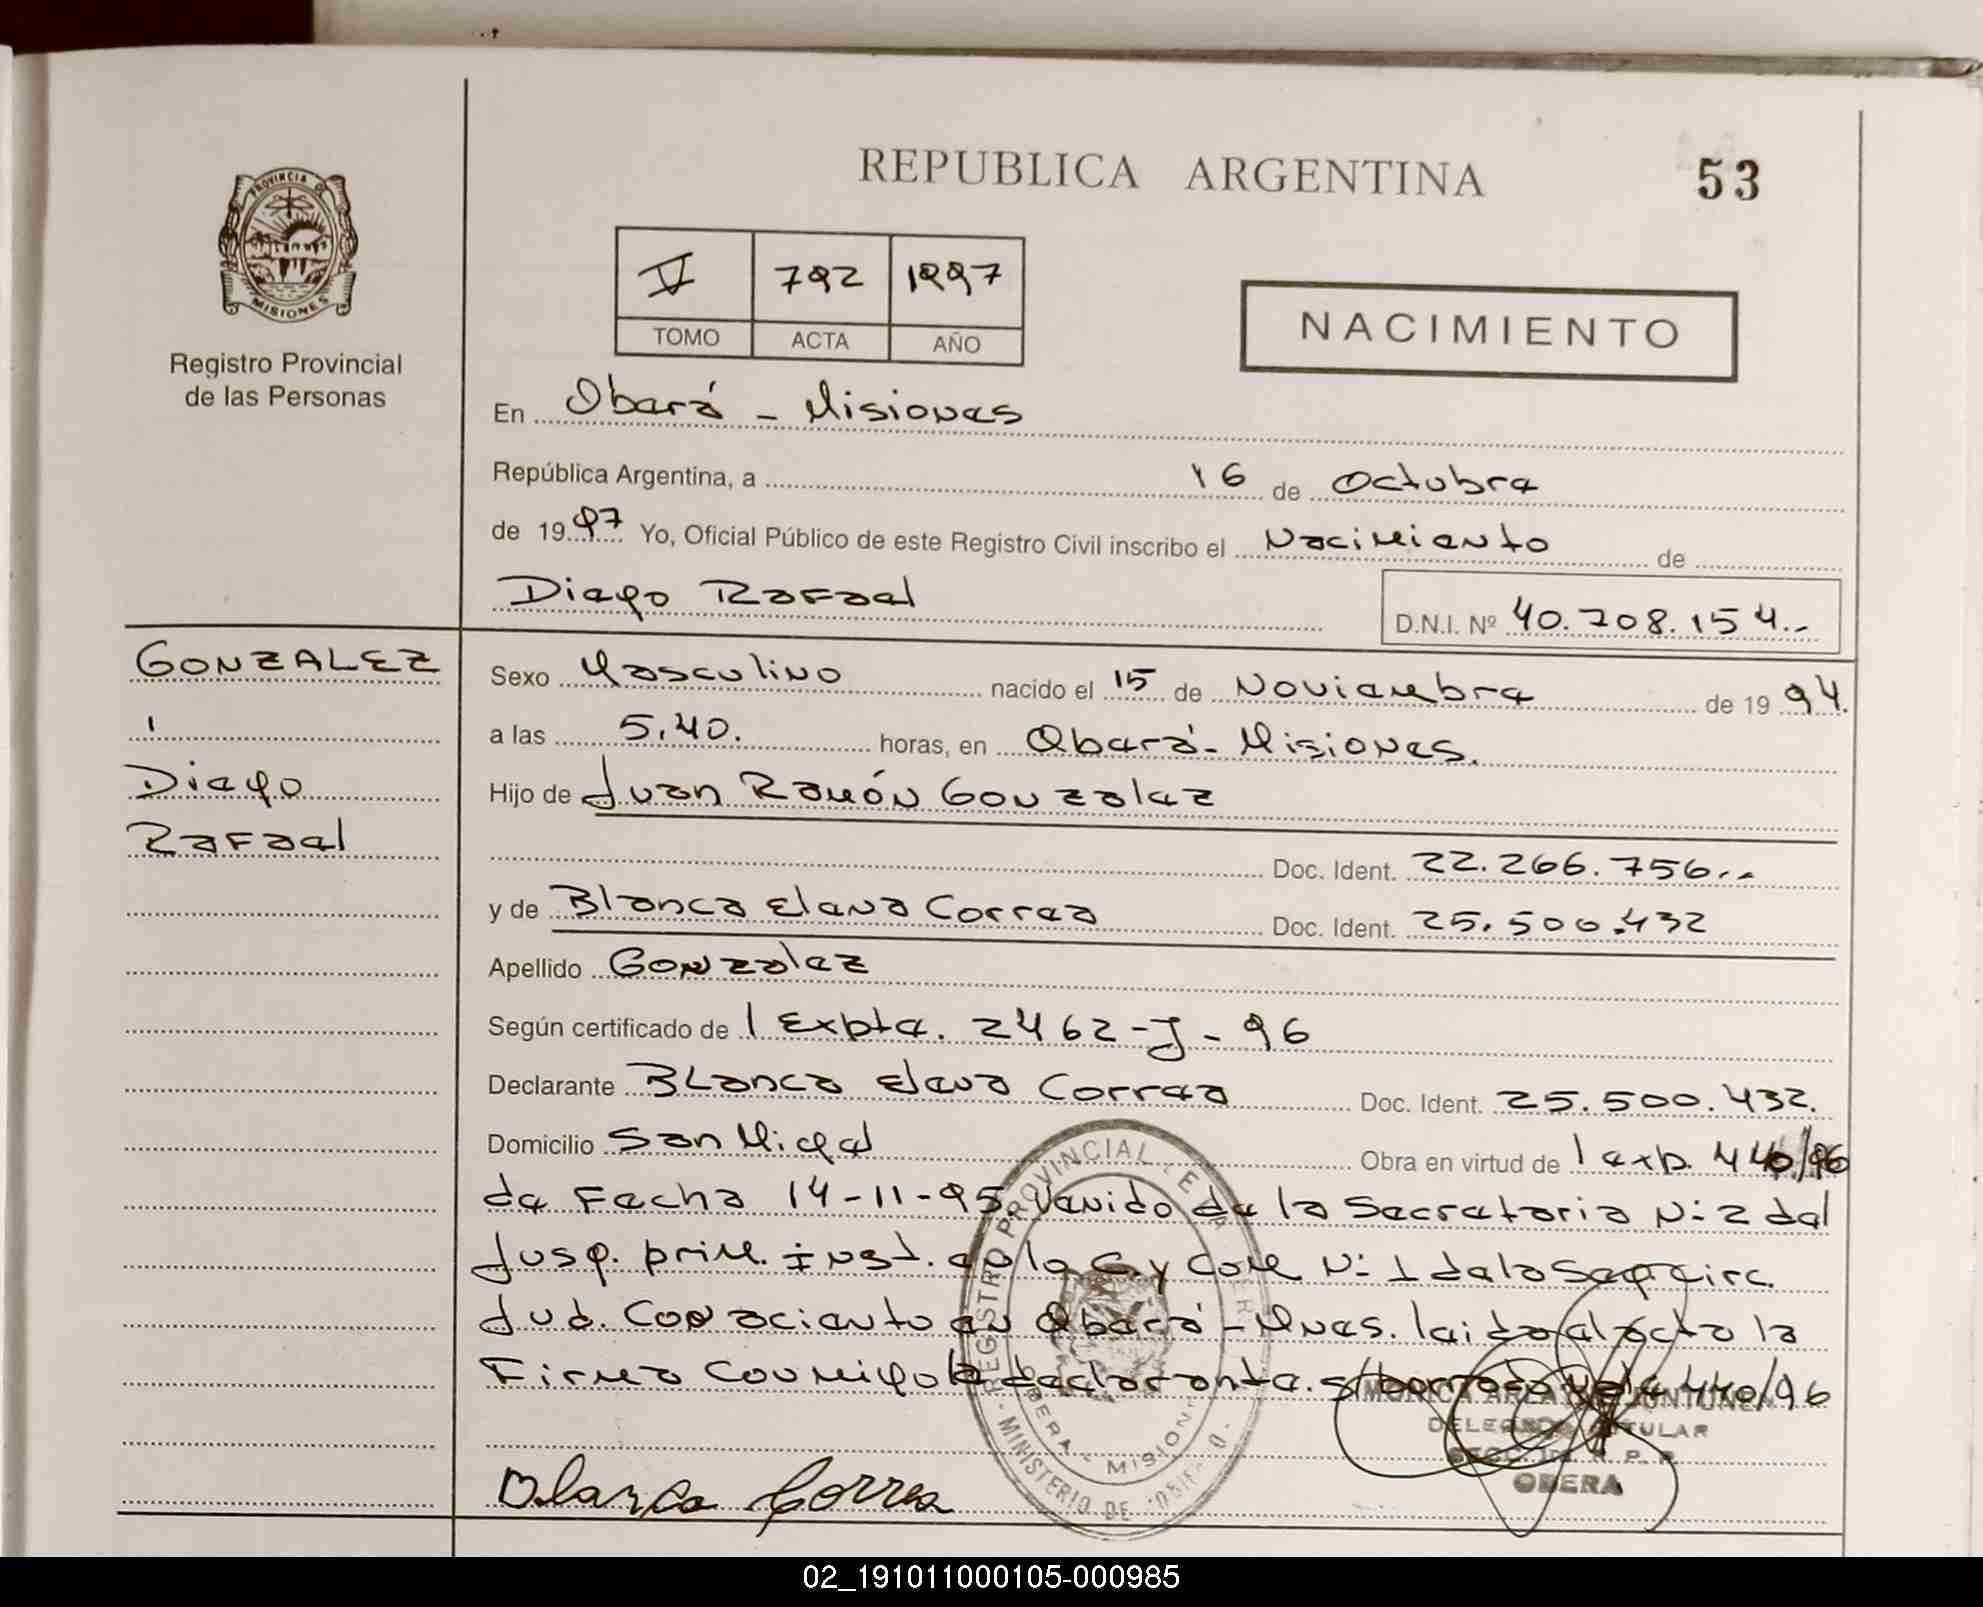 REPUBLICA ARGENTINA
53
PROVINCIA DE
MISIONES
Registro Provincial
de las Personas
V 792 1997
TOMO ACTA AÑO
NACIMIENTO
En Oberá - Misiones
República Argentina, a 16 de Octubre
de 1997 Yo, Oficial Público de este Registro Civil inscribo el Nacimiento de
Diego Rafael
D.N.I. Nº 40.708.154.-
GONZALEZ
,
Diego
Rafael
Sexo Masculino nacido el 15 de Noviembre de 1994.
a las 5.40. horas, en Oberá - Misiones.
Hijo de Juan Ramón Gonzalez
Doc. Ident. 22.266.756.-
y de Blanca Elena Correa Doc. Ident. 25.500.432
Apellido Gonzalez
Según certificado de 1 Expte. 2462-J-96
Declarante Blanca Elena Correa Doc. Ident. 25.500.432.
Domicilio San Migel Obra en virtud de 1 exp. 440/96
de Fecha 14-11-95 venido de la Secretaria N: 2 del
Jusg. prim. inst. en lo C. y Com N: 1 de la Seg circ.
Jud. Con aciento en Oberá - Mnes. leido el acta la
Firma conmigo la declarante. s/borrado vale 440/96
REGISTRO PROVINCIAL
OBERA - MISIONES
MINISTERIO DE
DELEGADA TITULAR
R. P. P.
OBERA
Blanca Correa
02_191011000105-000985